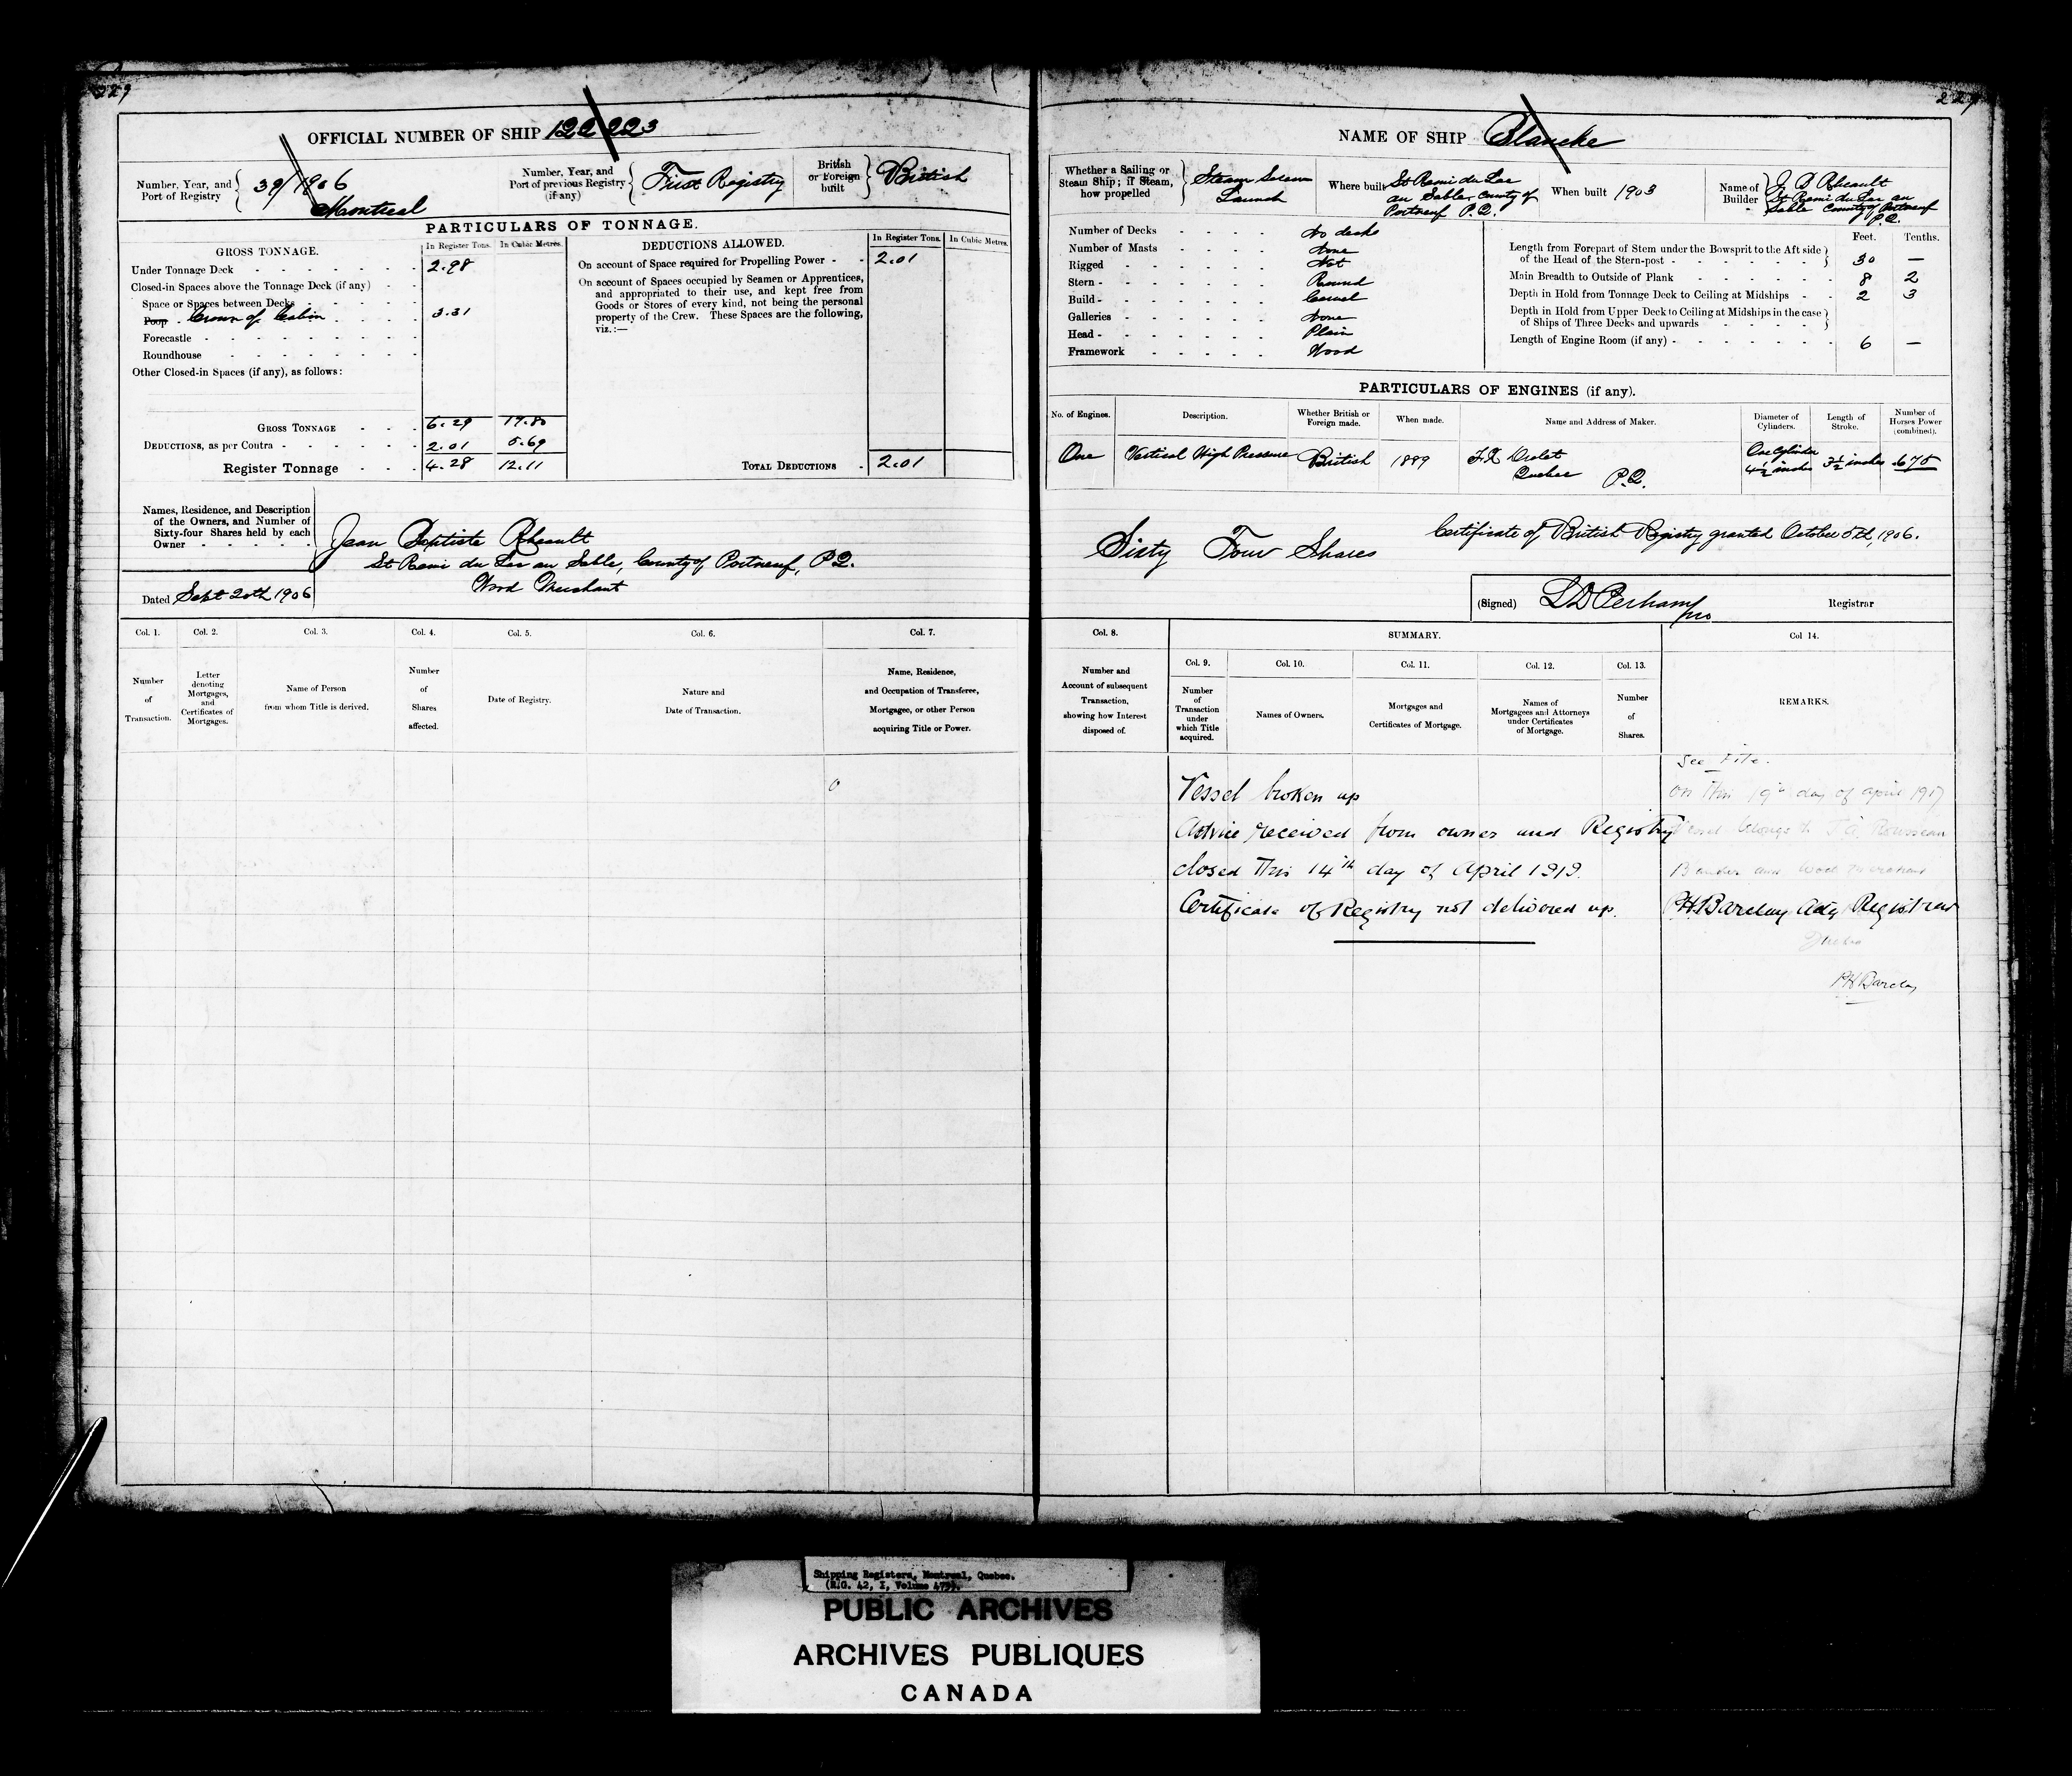 229
229
OFFICIAL NUMBER OF SHIP 122223
Number, Year, and Port of Registry 39/1906 Montreal
Number, Year, and Port of previous Registry (if any) First Registry
British or Foreign built British
PARTICULARS OF TONNAGE.
GROSS TONNAGE. In Register Tons. In Cubic Metres.
Under Tonnage Deck 2.98
Closed-in Spaces above the Tonnage Deck (if any)
Space or Spaces between Decks
Poop Crown of Cabin 3.31
Forecastle
Roundhouse
Other Closed-in Spaces (if any), as follows:
GROSS TONNAGE 6.29 17.80
DEDUCTIONS, as per Contra 2.01 5.69
Register Tonnage 4.28 12.11
DEDUCTIONS ALLOWED. In Register Tons. In Cubic Metres.
On account of Space required for Propelling Power 2.01
On account of Spaces occupied by Seamen or Apprentices,
and appropriated to their use, and kept free from
Goods or Stores of every kind, not being the personal
property of the Crew. These Spaces are the following,
viz.:—
TOTAL DEDUCTIONS 2.01
Names, Residence, and Description
of the Owners, and Number of
Sixty-four Shares held by each
Owner
Jean Baptiste Rheault
St Remi du Lac au Sable, County of Portneuf, P.Q.
Wood Merchant
Dated Sept 20th 1906
Col. 1. Col. 2. Col. 3. Col. 4. Col. 5. Col. 6. Col. 7.
Number of Transaction.
Letter denoting Mortgages, and Certificates of Mortgages.
Name of Person from whom Title is derived.
Number of Shares affected.
Date of Registry.
Nature and Date of Transaction.
Name, Residence, and Occupation of Transferee, Mortgagee, or other Person acquiring Title or Power.
NAME OF SHIP Blancke
Whether a Sailing or Steam Ship; if Steam, how propelled Steam Screw Launch
Where built St Remi du Lac au Sable, County of Portneuf P.Q.
When built 1903
Name of Builder J B Rheault St Remi du Lac au Sable County of Portneuf P.Q.
Number of Decks No decks
Number of Masts None
Rigged Not
Stern Round
Build Carvel
Galleries None
Head Plain
Framework Wood
Feet. Tenths.
Length from Forepart of Stem under the Bowsprit to the Aft side of the Head of the Stern-post 30 —
Main Breadth to Outside of Plank 8 2
Depth in Hold from Tonnage Deck to Ceiling at Midships 2 3
Depth in Hold from Upper Deck to Ceiling at Midships in the case of Ships of Three Decks and upwards
Length of Engine Room (if any) 6 —
PARTICULARS OF ENGINES (if any).
No. of Engines. Description. Whether British or Foreign made. When made. Name and Address of Maker. Diameter of Cylinders. Length of Stroke. Number of Horses Power (combined).
One Vertical High Pressure British 1889 F.X. Drolet Quebec P.Q. One Cylinder 4½ inches 3½ inches .675
Sixty Four Shares
Certificate of British Registry granted October 5th, 1906.
(Signed) Registrar
Col. 8. SUMMARY. Col 14.
Col. 9. Col. 10. Col. 11. Col. 12. Col. 13.
Number and Account of subsequent Transaction, showing how Interest disposed of.
Number of Transaction under which Title acquired.
Names of Owners.
Mortgages and Certificates of Mortgage.
Names of Mortgagees and Attorneys under Certificates of Mortgage.
Number of Shares.
REMARKS.
See File.
Vessel broken up
on this 19th day of April 1917
Advice received from owner and Registry
Vessel belongs to J A Rousseau
closed this 14th day of April 1919.
and Wood Merchant
Certificate of Registry not delivered up.
PH Barclay Actg Registrar
PH Barclay
Shipping Registers, Montreal, Quebec.
(R.G. 42, I, Volume 479).
PUBLIC ARCHIVES
ARCHIVES PUBLIQUES
CANADA